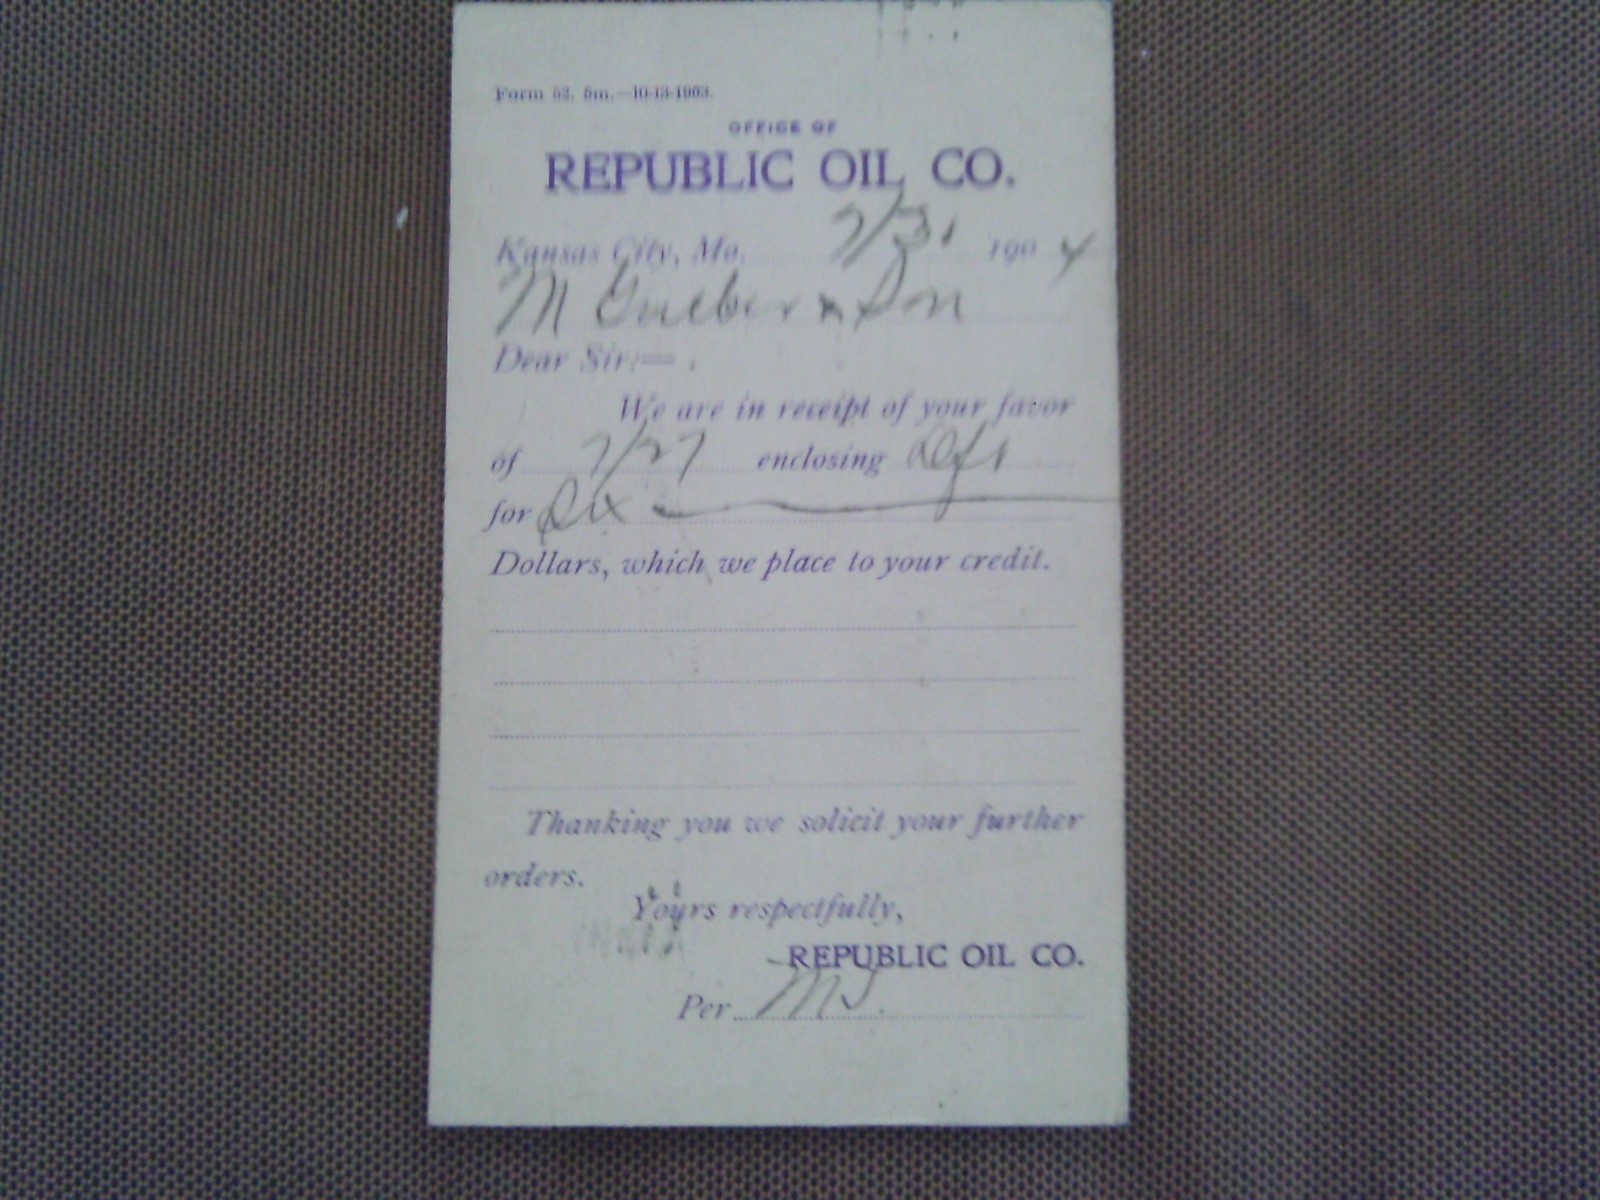 Form 52. 5m.—10-13-1903.
OFFICE OF
REPUBLIC OIL CO.
Kansas City, Mo. 7/31 190 4
M & Son
Dear Sir:—
We are in receipt of your favor
of 7/27 enclosing Dft
for Six
Dollars, which we place to your credit.
Thanking you we solicit your further
orders.
Yours respectfully,
REPUBLIC OIL CO.
Per